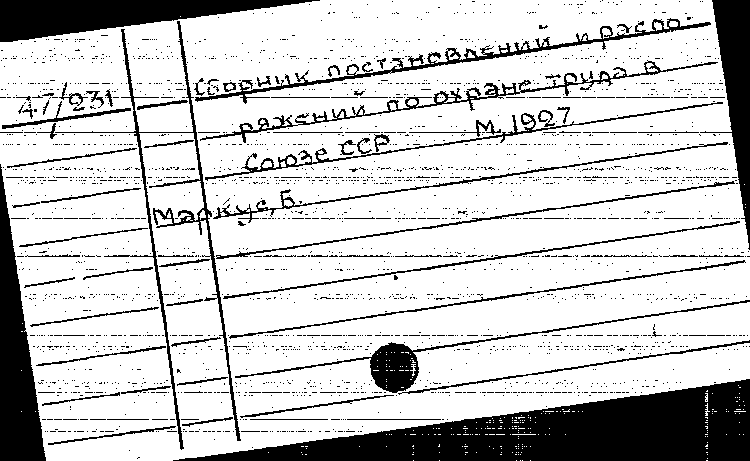 Сборник постановлений и распо-
47/231
ряжений по охране труда в
Союзе ССР М., 1927
Маркус, Б.